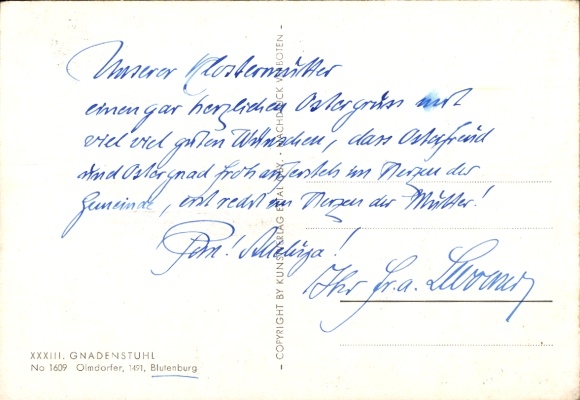 Unserer Klostermutter
einen gar herzlichen Ostergruss mit
viel viel guten Wünschen, dass Osterfreud
und Ostergnad froh aufersteh im Herzen der
Gemeinde, erst recht im Herzen der Mutter!
Alleluja!
Ihr fr. a.
- COPYRIGHT BY KUNSTVERLAG ETTAL/OBB. - NACHDRUCK VERBOTEN -
XXXIII. GNADENSTUHL
No 1609 Olmdorfer, 1491, Blutenburg